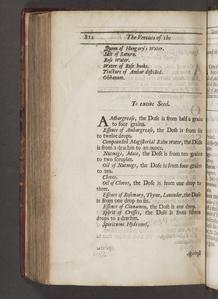 812 The Vertues of the
Queen of Hungary's Water.
Salt of Saturn.
Rose Water.
Water of Rose buds.
Tincture of Ambar distilled.
Olibanum.
To excite Seed.
Ambargrease, the Dose is from half a grain
to four grains.
Essence of Ambargrease, the Dose is from six
to twelve drops.
Compounded Magisterial Balm water, the Dose
is from a drachm to an ounce.
Nutmegs, Mace, the Dose is from ten grains
to two scruples.
Oil of Nutmegs, the Dose is from four grains
to ten.
Cloves.
Oil of Cloves, the Dose is from one drop to
three.
Essence of Rosemary, Thyme, Lavender, the Dose
is from one drop to six.
Essence of Cinnamon, the Dose is one drop.
Spirit of Cresses, the Dose is from fifteen
drops to a drachm.
Spirituous Hydromel,